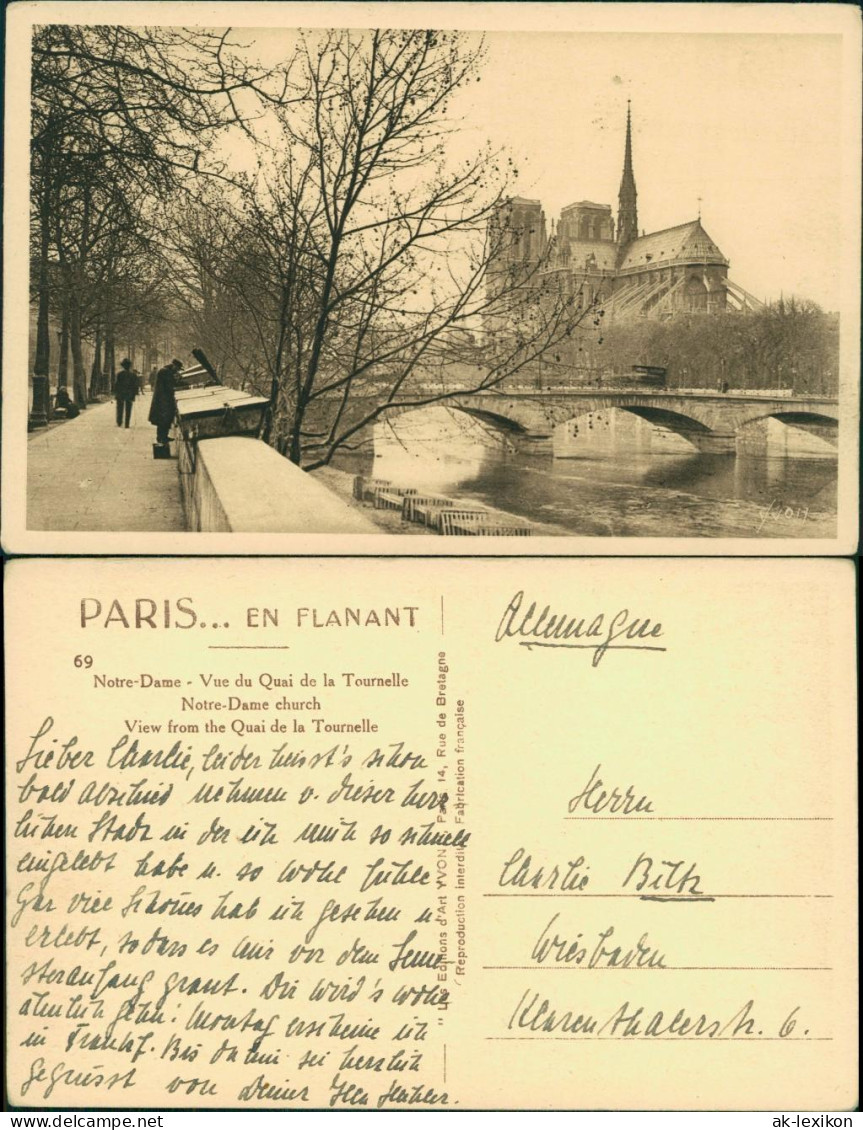 Yvon
PARIS... EN FLANANT
69
Notre-Dame - Vue du Quai de la Tournelle
Notre-Dame church
View from the Quai de la Tournelle
Lieber Charlie, leider heisst's schon
bald Abschied nehmen v. dieser herr
lichen Stadt in der ich mich so schnell
eingelebt habe u. so wohl fühle.
Gar viel Schönes hab ich gesehen u.
erlebt, sodass es mir vor dem Seme
steranfang graut. Dir wird's wohl
ähnlich gehn! Montag erscheine ich
in Frankf. Bis dahin sei herzlich
gegrüsst von Deiner
"Les Editions d'Art YVON" Paris 14, Rue de Bretagne
Reproduction interdite Fabrication française
Allemagne
Herrn
Charlie Biltz
Wiesbaden
Klarenthalerstr. 6.
www.delcampe.net
ak-lexikon